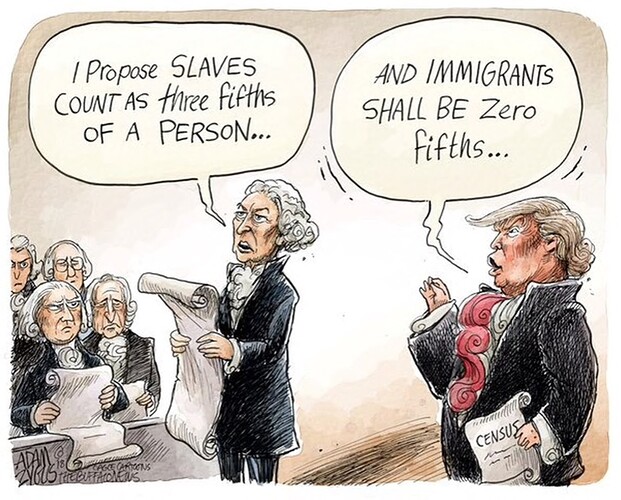 I PROPOSE SLAVES
COUNT AS three fifths
OF A PERSON...
AND IMMIGRANTS
SHALL BE Zero
fifths...
CENSUS
ADAM
ZYGLIS
THE BUFFALO NEWS